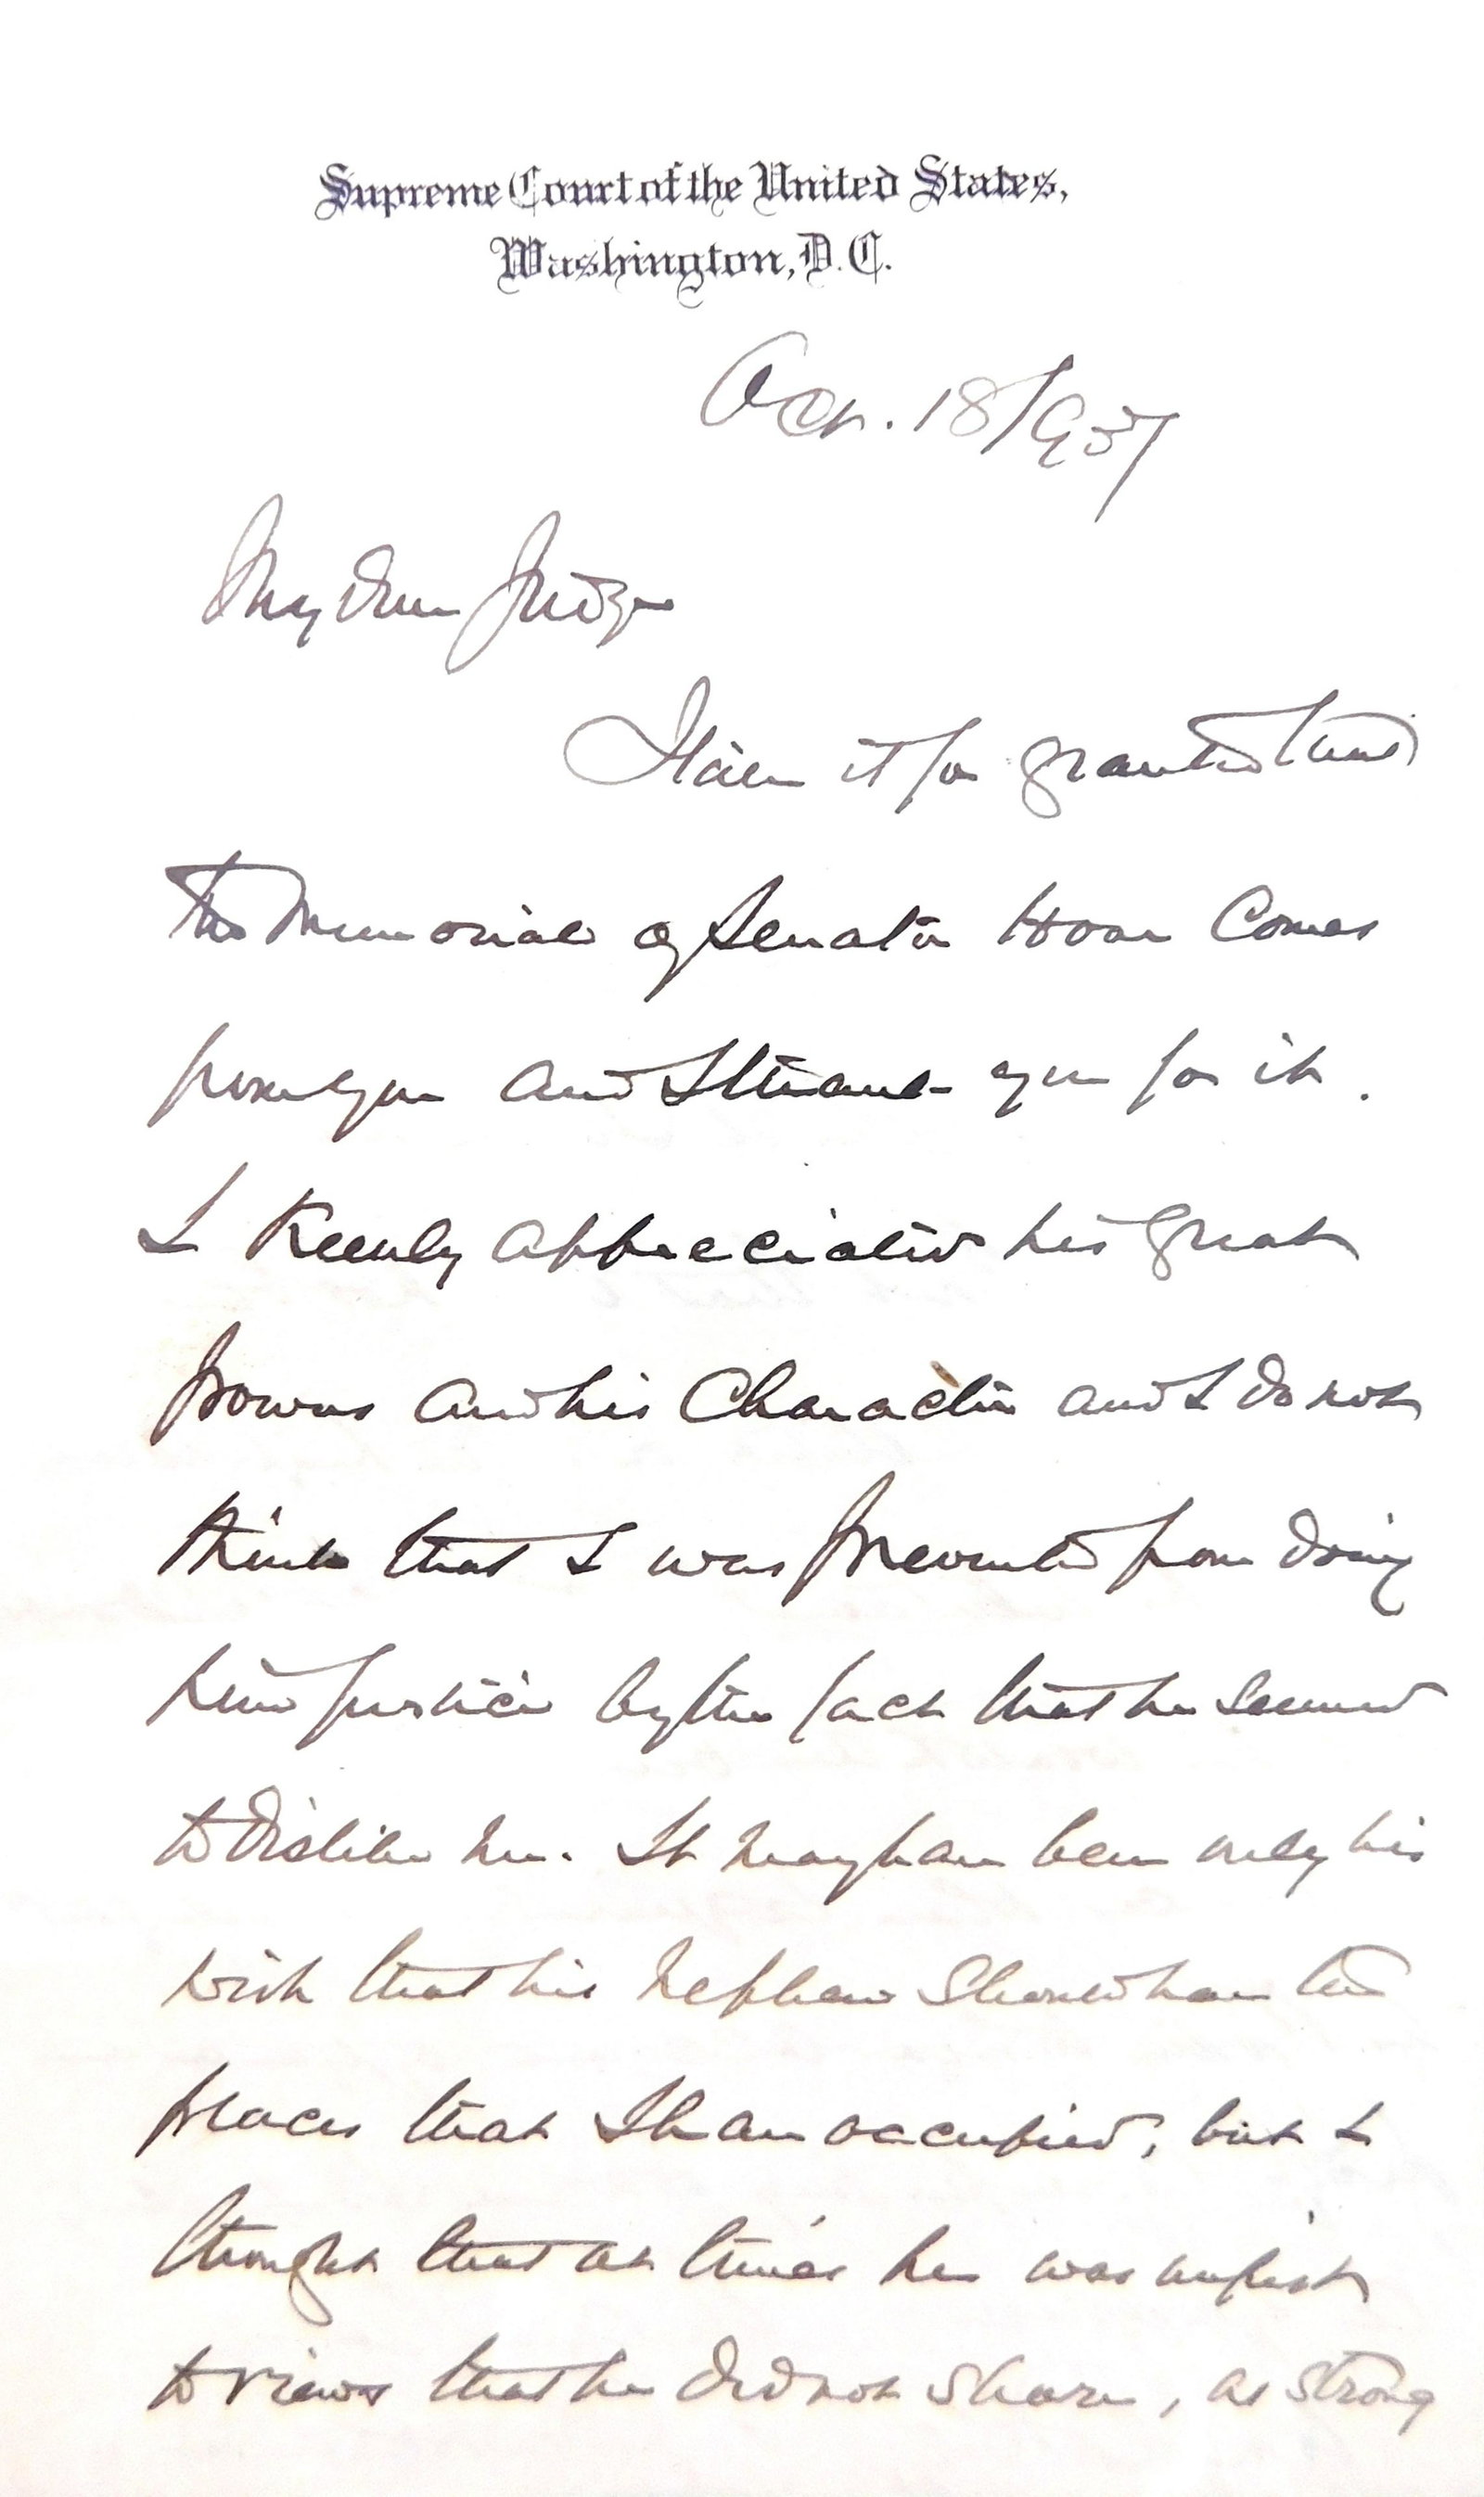 Supreme Court of the United States,
Washington, D.C.
Oct. 18/
My dear Judge
I take it for granted that
the memorial of Senator Hoar comes
from you and I thank you for it.
I keenly appreciated his great
powers and his character and I do not
think that I was prevented from doing
him justice by the fact that he seemed
to dislike me. It may have been only his
wish that his nephew should have the
places that I have occupied, but I
thought that at times he was unjust
to views that he did not share, as strong